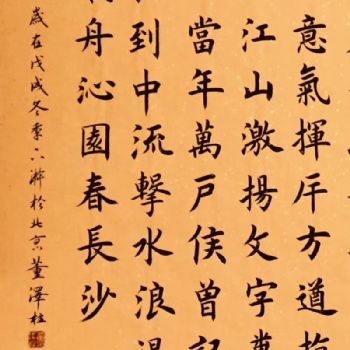 意氣揮斥方遒指
江山激揚文字糞
當年萬戶侯曾記
到中流擊水浪遏
舟沁園春長沙
歲在戊戌冬季下澣於北京董澤柱